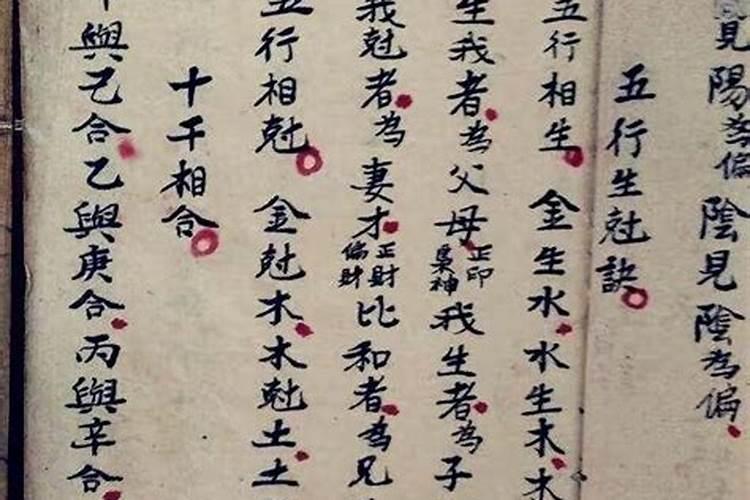 見陽為偏陰見陰為偏
五行生尅訣
五行相生 金生水水生木木
生我者為父母正印梟神我生者為子
我尅者為妻才正財偏財比和者為兄
五行相尅 金尅木木尅土土
十干相合
與乙合乙與庚合丙與辛合